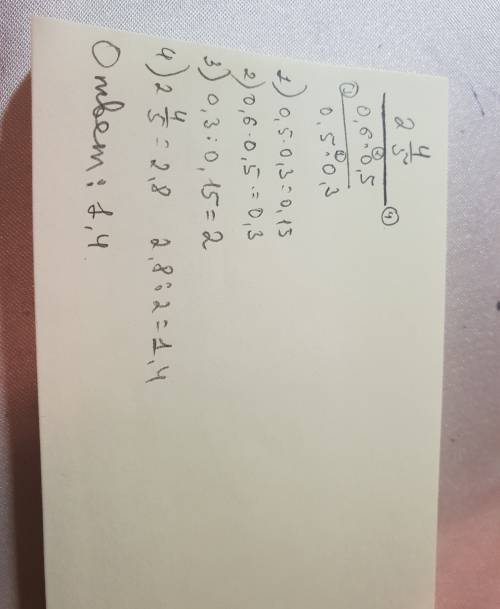 2 4/5
④
0,6 · 0,5
③
0,5 · 0,3
1) 0,5·0,3=0,15
2) 0,6·0,5=0,3
3) 0,3:0,15=2
4) 2 4/5 = 2,8 2,8:2=1,4
Ответ: 1,4